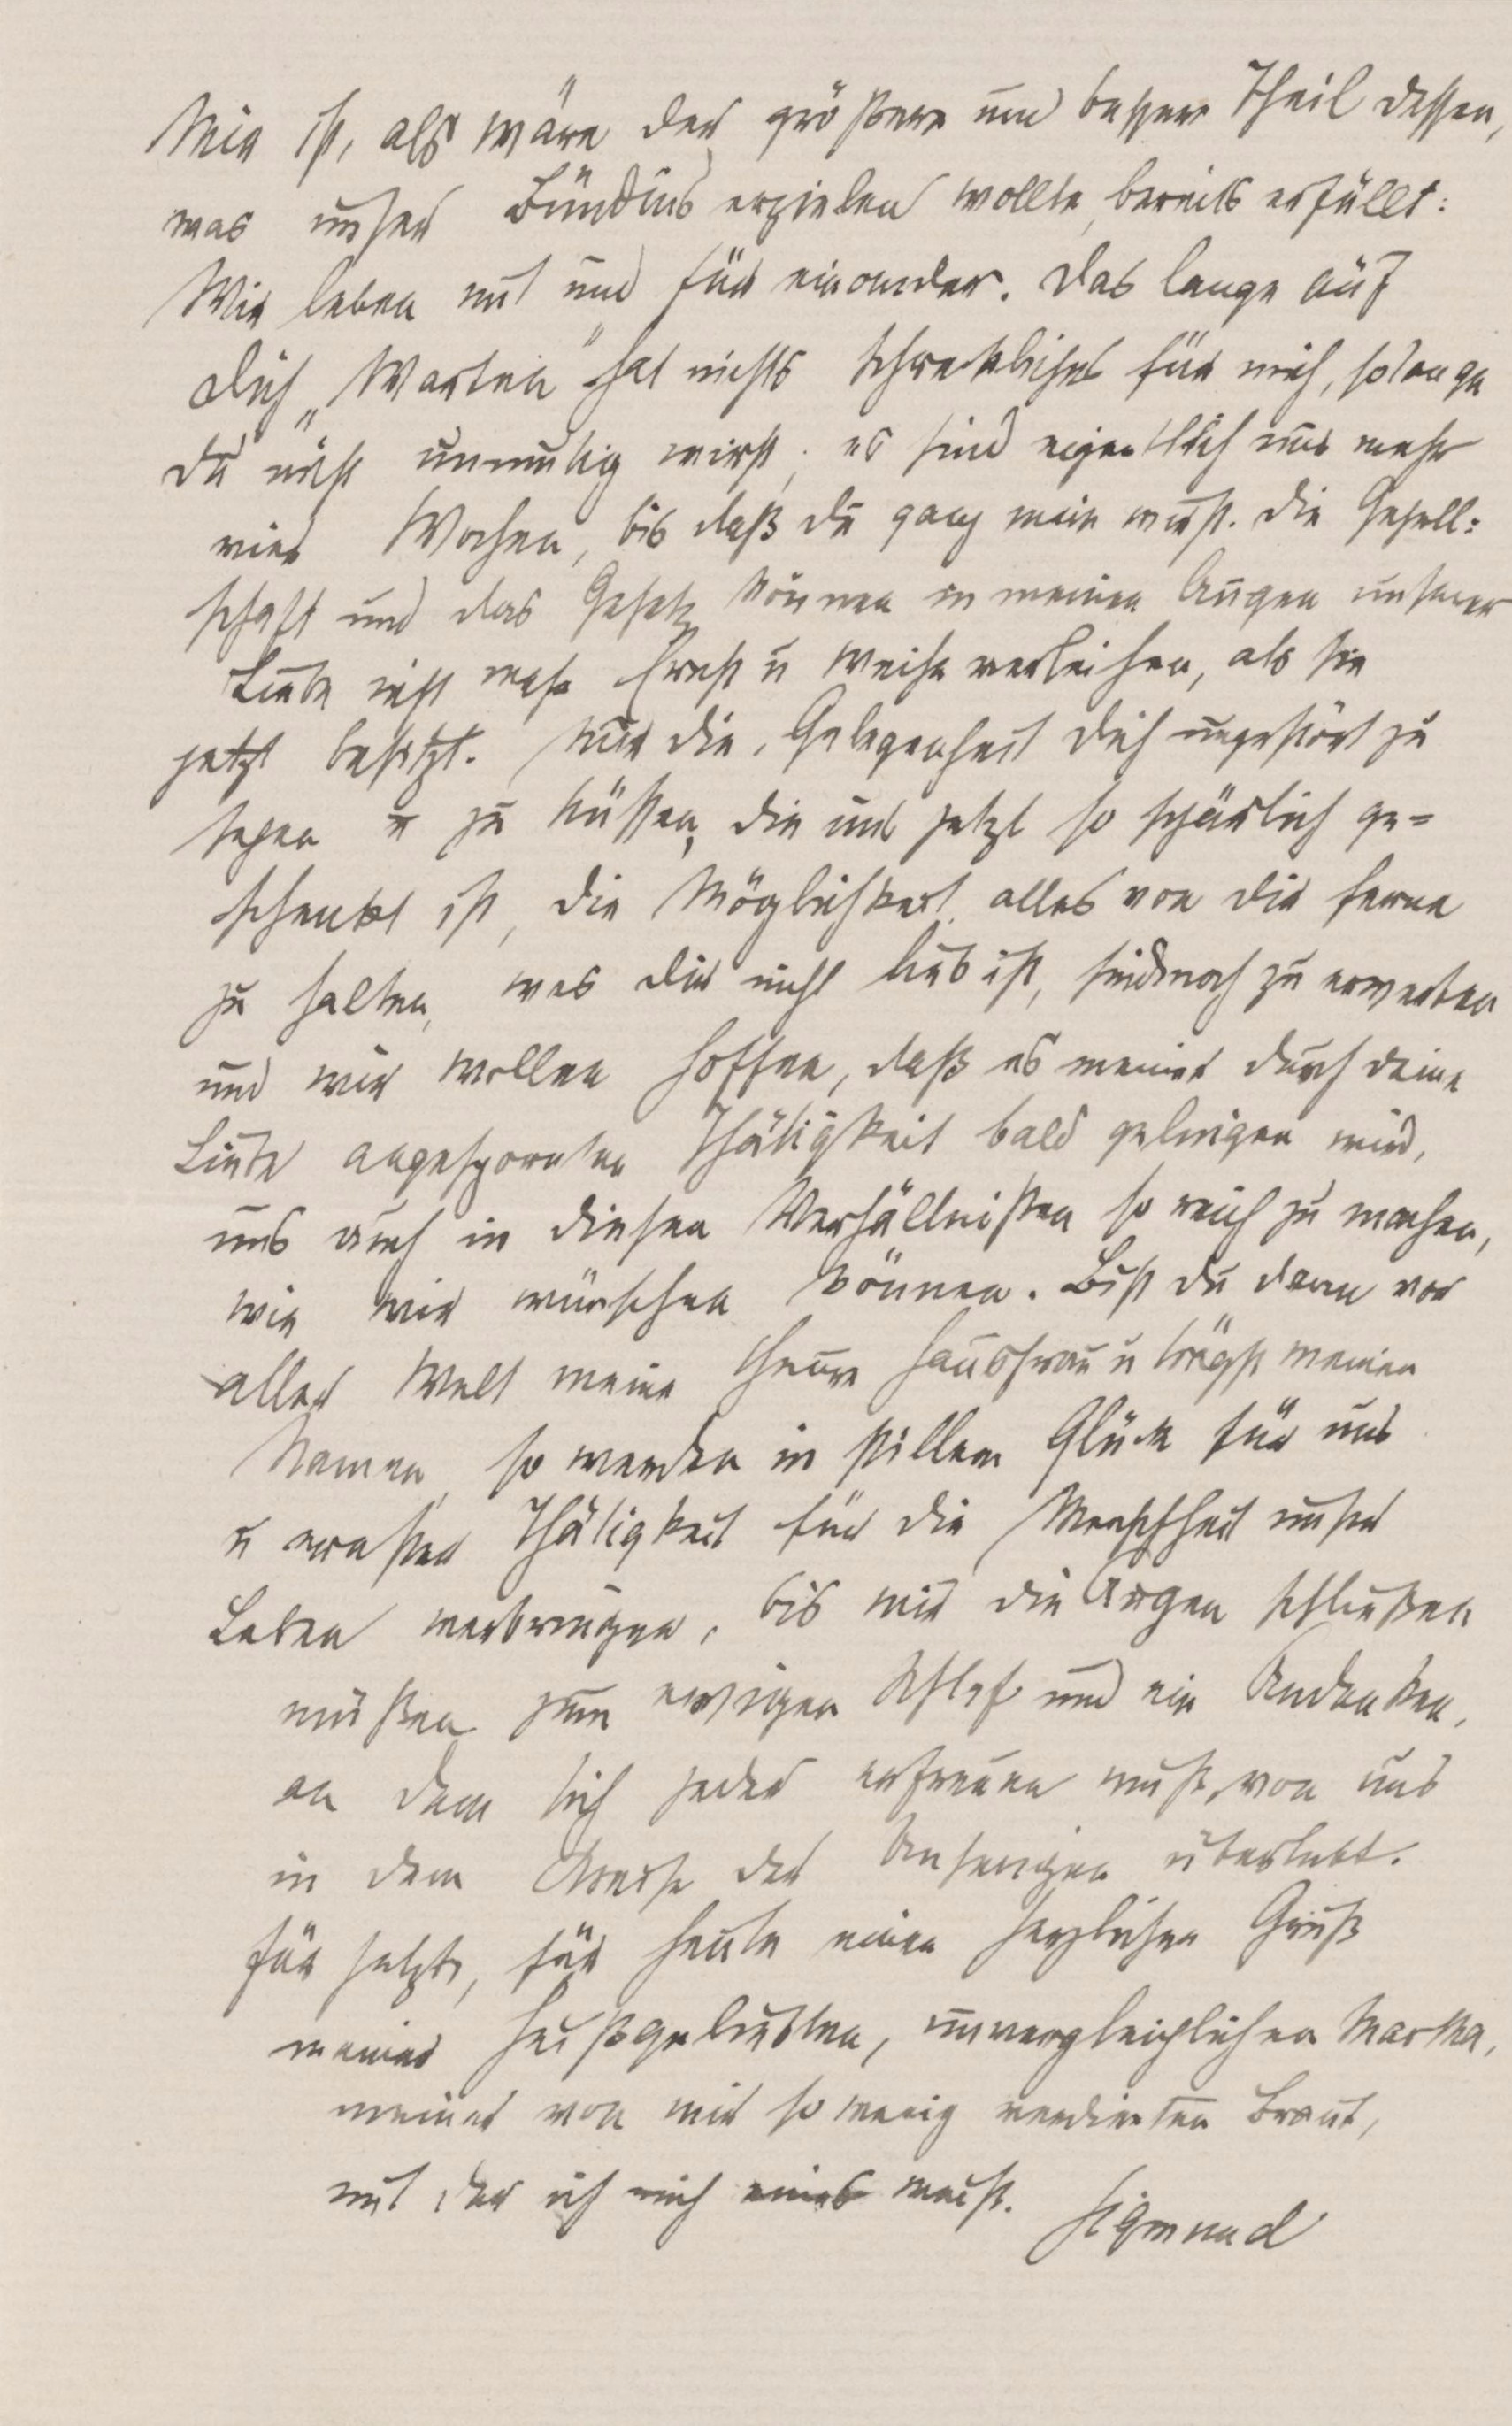 Mir ist, als wäre der größere und bessere Theil dessen,
was unser Bündnis erzielen wollte, bereits erfüllt:
Wir leben mit und für einander. Das lange auf
Dich „Warten“ hat nichts Schreckliches für mich, solange
Du nicht unmutig wirst; es sind eigentlich nur mehr
vier Wochen, bis daß Du ganz mein wirst. Die Gesell=
schaft und das Gesetz können in meinen Augen unserer
Liebe nicht mehr Ernst u Weihe verleihen, als sie
jetzt besitzt. Nur die Gelegenheit Dich ungestört zu
sehen u zu küssen, die uns jetzt so spärlich ge=
schenkt ist, die Möglichkeit alles von Dir ferne
zu halten, was Dir nicht lieb ist, sind noch zu erwerben
und wir wollen hoffen, daß es meiner durch Deine
Liebe angespornten Thätigkeit bald gelingen wird,
uns auch in diesen Verhältnißen so reich zu machen,
wie wir wünschen können. Bist Du dann vor
aller Welt meine theure Hausfrau u trägst meinen
Namen, so werden in stillem Glück für uns
u ernster Thätigkeit für die Menschheit unser
Leben verbringen, bis wir die Augen schließen
müßen zum ewigen Schlaf und ein Andenken,
an dem sich jeder erfreuen muß, von uns
in dem Kreise der Unserigen überlebt.
Für jetzt, für heute einen herzlichen Gruß
meiner heißgeliebten, unvergleichlichen Martha,
meiner von mir so wenig verdienten Braut,
mit der ich mich eines weiß. Sigmund